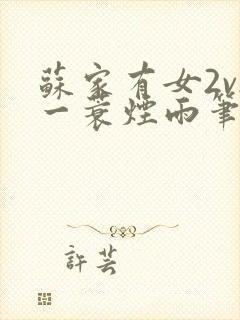 蘇家有女2v
一蓑煙雨筆
許芸